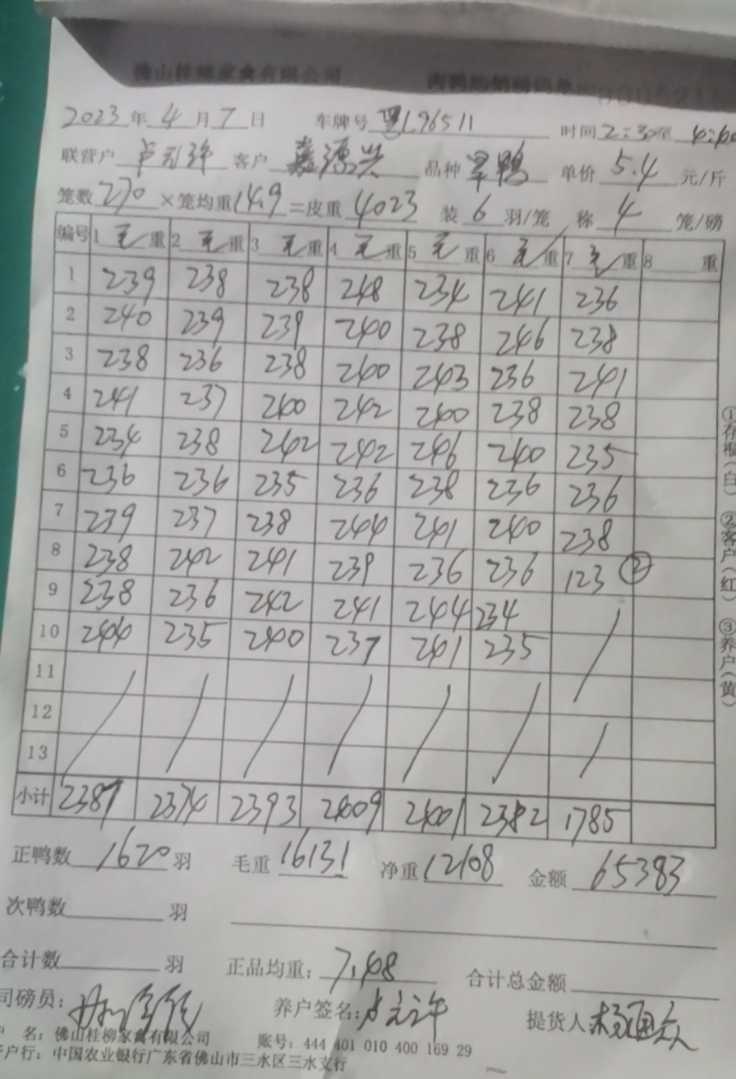 佛山桂柳家禽有限公司
2023年4月7日 车牌号 L96511 时间2:30至4:00
联营户 卢 许 客户 嘉源兴 品种 旱鸭 单价5.4元/斤
笼数270×笼均重14.9=皮重4023 装6羽/笼 称4笼/磅
编号 1毛重 2毛重 3毛重 4毛重 5毛重 6毛重 7毛重 8 重
1 239 238 238 248 234 241 236
2 240 239 239 240 238 246 238
3 238 236 238 240 243 236 241
4 241 237 240 242 240 238 238
5 234 238 242 242 246 240 235
6 236 236 235 236 238 236 236
7 239 237 238 244 241 240 238
8 238 242 241 239 236 236 123 ②
9 238 236 242 241 244 234 /
10 244 235 240 237 241 235
11
12 / / / / / / /
13
小计 2387 2374 2393 2409 2401 2382 1785
正鸭数1620羽 毛重16131 净重12108 金额65383
次鸭数 羽
合计数 羽 正品均重:7.48 合计总金额
司磅员: 养户签名: 许 提货人
名:佛山桂柳家禽有限公司 账号:444 401 010 400 169 29
户行:中国农业银行广东省佛山市三水区三水支行
①存根(白) ②客户(红) ③养户(黄)